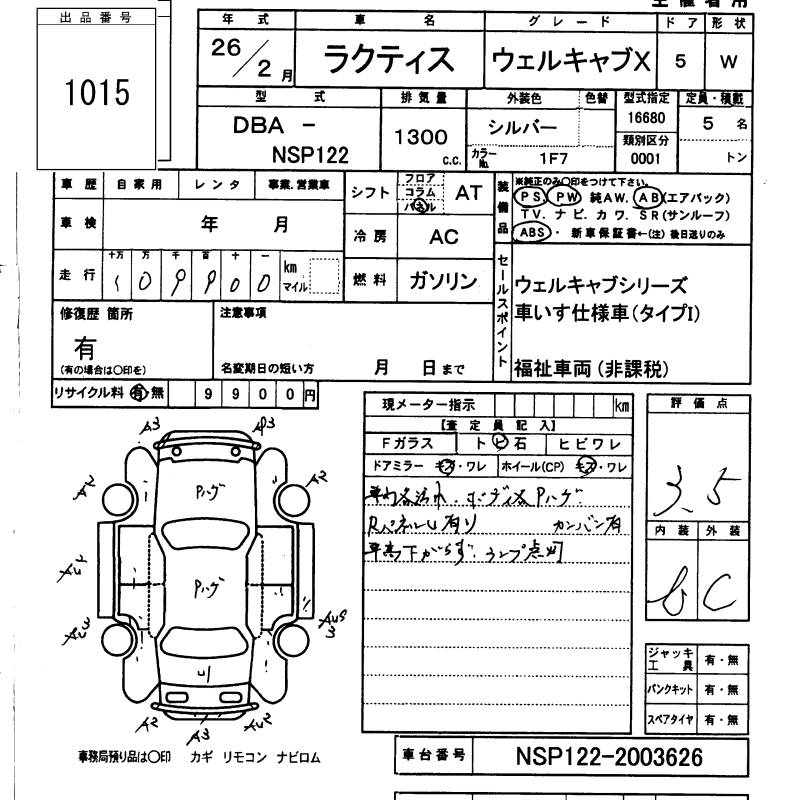 出品番号
1015
年 式 車 名 グレード ドア 形状
26/2月 ラクティス ウェルキャブX 5 W
型 式 排気量 外装色 色替 型式指定 定員・積載
DBA - NSP122 1300 c.c. シルバー 16680 5 名
カラーNo. 1F7 類別区分 0001 トン
車歴 自家用 レンタ 事業.営業車
シフト フロア コラム パネル AT
車検 年 月
冷房 AC
走行 十万 万 千 百 十 一 km マイル
燃料 ガソリン
装備品 ※純正のみ〇印をつけて下さい。
PS, PW 純AW, AB(エアバック)
TV, ナビ, カワ, SR(サンルーフ)
ABS・ 新車保証書←(注) 後日送りのみ
セールスポイント
ウェルキャブシリーズ
車いす仕様車(タイプI)
福祉車両(非課税)
修復歴 箇所 注意事項
有
(有の場合は〇印を) 名変期日の短い方 月 日まで
リサイクル料 有 無 9900円
現メーター指示 km
【査定員記入】
Fガラス ト ヒ 石 ヒビワレ
ドアミラー キズ・ワレ ホイール(CP) キズ・ワレ
RパネルU有り カンバン有
評価点
3.5
内装 外装
b C
A3 A3
Pハゲ
A2 A2
Pハゲ
AU3
3
A2 A3 AU2
ジャッキ工具 有・無
パンクキット 有・無
スペアタイヤ 有・無
事務局預り品は〇印 カギ リモコン ナビロム
車台番号 NSP122-2003626